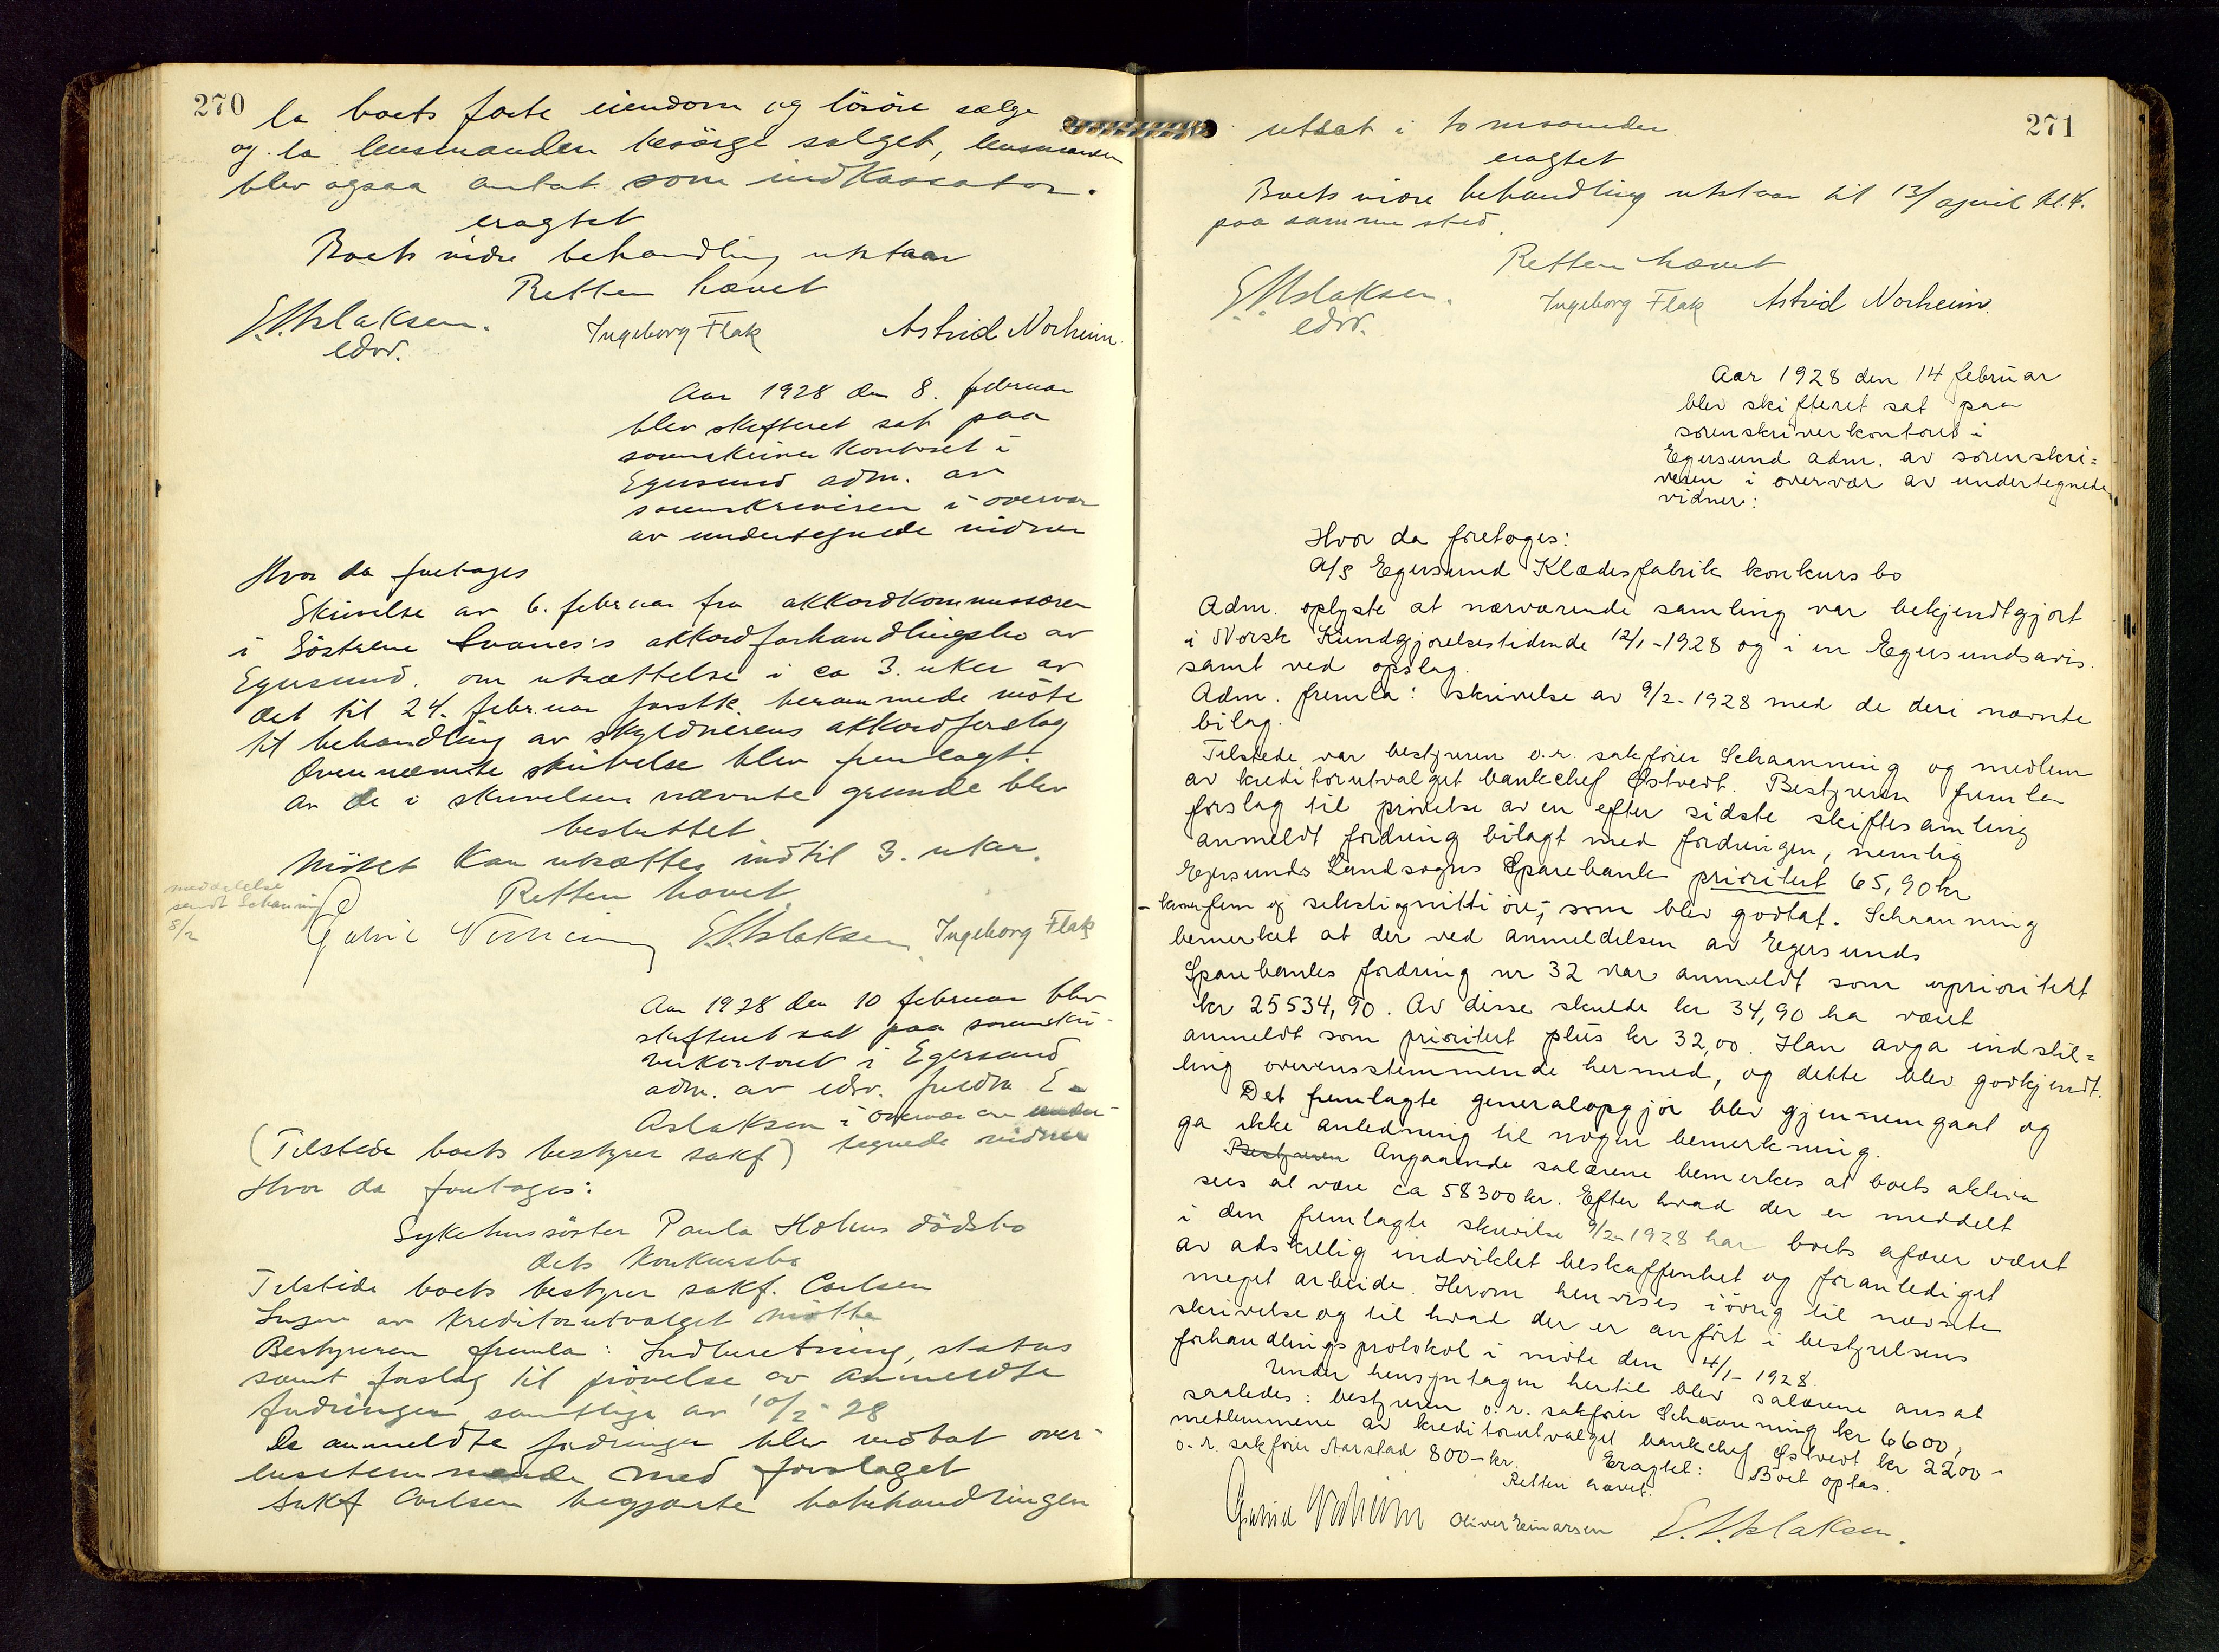 270
la boets faste eiendom og lösöre sælge
og la lensmanden besörge salget, lensmanden
blev ogsaa antat som indkassator.
eragtet
Boets vidre behandling utstaar
Retten hævet
E. Aslaksen.
edsv.
Ingeborg Flak
Astrid Norheim.
Aar 1928 den 8. februar
blev skifteret sat paa
sorenskriver kontoret i
Egersund adm. av
sorenskriveren i overvær
av undertegnede vidner
Hvor da foretages
Skrivelse av 6. februar fra akkordkommissæren
i Söstrene Svanes's akkordforhandlingsbo av
Egersund. om utsættelse i ca 3. uker av
det til 24. februar förstk. berammede möte
til behandling av skyldnerens akkordforslag
Ovennævnte skrivelse blev fremlagt.
Av de i skrivelsen nævnte grunde blev
besluttet
Mötet kan utsættes indtil 3. uker.
Retten hævet
meddelelse
sendt Schanning
8/2
Norheim E. Aslaksen Ingeborg Flak
Aar 1928 den 10 februar blev
skifteret sat paa sorenskri-
verkontoret i Egersund
adm. av edsv. fuldm E.
Aslaksen i overvær av under-
tegnede vidner
(Tilstede boets bestyrer sakf)
Hvor da foretages:
Sykehussöster Paula Holens dödsbo
dets konkursbo
Tilstede boets bestyrer sakf. Carlsen
Ingen av kreditorutvalget mötte
Bestyreren fremla: Indberetning, status
samt forslag til prövelse av anmeldte
fordringer, samtlige av 10/2-28
De anmeldte fordringer blev vedtat over-
ensstemmende med forslaget
Sakf Carlsen begjærte bobehandlingen
271
utsat i to maaneder.
eragtet
Boets vidre behandling utstaar til 13/april kl. 4.
paa samme sted.
Retten hævet
E. Aslaksen.
edsv.
Ingeborg Flak Astrid Norheim.
Aar 1928 den 14 februar
blev skifteret sat paa
sorenskriverkontoret i
Egersund adm. av sorenskri=
veren i overvær av undertegnede
vidner:
Hvor da foretoges:
A/S Egersund Klædesfabrik konkursbo
Adm. oplyste at nærværende samling var bekjendtgjort
i Norsk Kundgjørelsestidende 12/1-1928 og i en Egersundsavis.
samt ved opslag.
Adm. fremla: skrivelse av 9/2-1928 med de deri nævnte
bilag.
Tilstede var bestyreren o.r. sakfører Schaanning og medlem
av kreditorutvalget bankchef Østvedt. Bestyreren fremla
forslag til prøvelse av en efter sidste skiftesamling
anmeldt fordring bilagt med fordringen, nemlig
Egersunds Landsogns Sparebank prioritert 65,90 kr
- kroner fem og sekstiognitti øre -, som blev godtat. Schaanning
bemerket at der ved anmeldelsen av Egersunds
Sparebanks fordring nr 32 var anmeldt som uprioritert
kr 25534,90. Av disse skulde kr 34,90 ha været
anmeldt som prioritert plus kr 32,00. Han avga indstil=
ling overensstemmende hermed, og dette blev godkjendt.
Det fremlagte generalopgjør blev gjennemgaat og
ga ikke anledning til nogen bemerkning.
Bestyreren Angaaende salærene bemerkes at boets aktiva
sees at være ca 58300 kr. Efter hvad der er meddelt
i den fremlagte skrivelse 9/2-1928 har boets affærer været
av adskillig indviklet beskaffenhet og foranlediget
meget arbeide. Herom henvises iøvrig til nævnte
skrivelse og til hvad der er anført i bestyrelsens
forhandlingsprotokol i møte den 4/1-1928.
Under hensyntagen hertil blev salærene ansat
saaledes: bestyreren o.r. sakfører Schaanning kr 6600,
medlemmene av kreditorutvalget bankchef Østvedt kr 2200-
o.r. sakfører Aarstad 800-kr. Eragtet: Boet optas.
Retten hævet.
Norheim Oliver Einarsen E. Aslaksen.